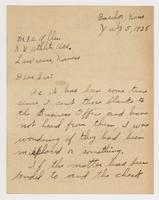 Basehor, Kans
July 5, 1935
Dr. F.C. Allen
K.U. Athletic Ass.
Lawrence, Kansas
Dear Sir:
As it has been some time
since I sent those blanks to
the Business Office and have
not heard from them, I was
wondering if they had been
misplaced or something.
If the matter has been
tended to and the check